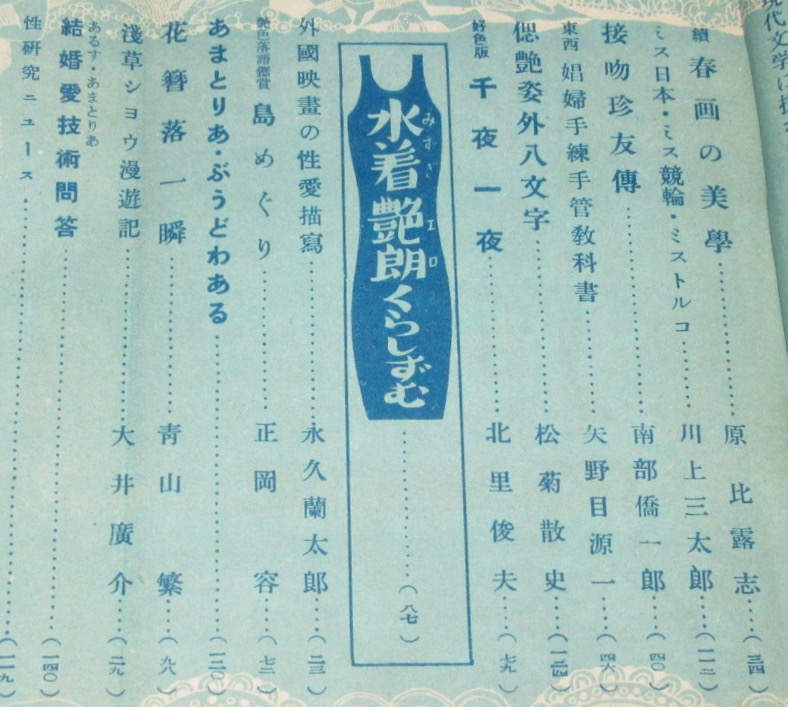 現代文学に
續 春画の美學……原比露志…(三四)
ミス日本・ミス競輪・ミストルコ……川上三太郎…(一一二)
接吻珍友傳……南部僑一郎…(四〇)
東西 娼婦手練手管教科書……矢野目源一…(四六)
偲艶姿外八文字……松菊散史…(一三四)
好色版 千夜一夜……北里俊夫…(七九)
水着艶朗くらしずむ……(八七)
みずぎ エロ
外國映畫の性愛描寫……永久蘭太郎…(二三)
艶色落語鑑賞 島めぐり……正岡容…(七二)
あまとりあ・ぶうどわある……(一三〇)
花簪落一瞬……青山繁…(九八)
淺草ショウ漫遊記……大井廣介…(二九)
あるす・あまとりあ
結婚愛技術問答……(一四〇)
性研究ニュース……(一一九)